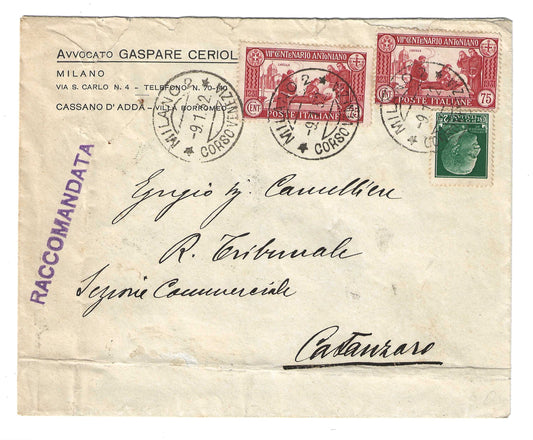 AVVOCATO GASPARE CERIOL
MILANO
VIA S. CARLO N. 4 - TELEFONO N. 70-
CASSANO D'ADDA - VILLA BORROMEO
VII° CENTENARIO ANTONIANO
CENT
POSTE ITALIANE
VII° CENTENARIO ANTONIANO
POSTE ITALIANE
75
MILANO 2
-9.1.
CORSO VENEZIA
MILANO 2
-9.
CORSO
RACCOMANDATA
Egregio Sig. Cancelliere
R. Tribunale
Sezione Commerciale
Catanzaro